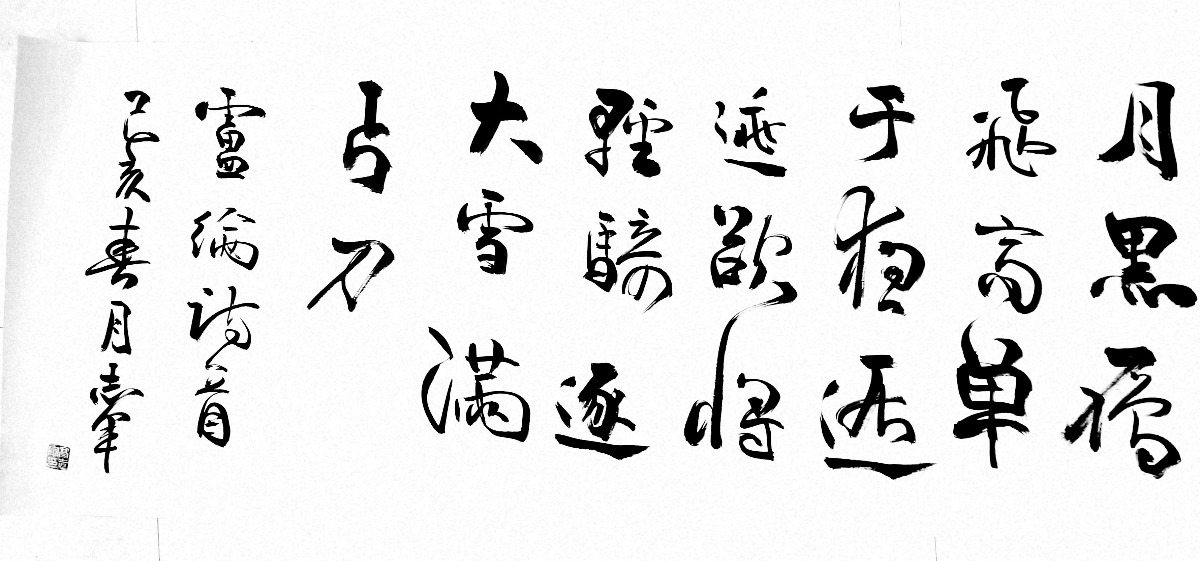 月黑鴈
飛高单
于夜遁
逃欲将
輕騎逐
大雪滿
弓刀
盧綸詩一首
己亥春月志